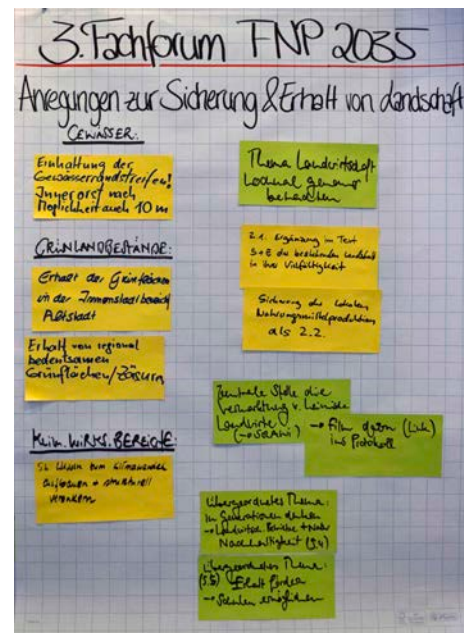 3. Fachforum FNP 2035
Anregungen zur Sicherung & Erhalt von Landschaft
GEWÄSSER:
Einhaltung der
Gewässerrandstreifen!
Innerorst nach
Möglichkeit auch 10 m
GRÜNLANDBESTÄNDE:
Erhalt der Grünflächen
in der
Altstadt
Erhalt von regional
bedeutsamen
Grünflächen/Zäsuren
KLIM. WIRKS. BEREICHE:
Thema Landwirtschaft
nochmal genauer
betrachten
2.1. Ergänzung im Text
S+E der bestehenden Landschaft
in ihrer Vielfältigkeit
Sicherung der lokalen
Nahrungsmittelproduktion
als 2.2.
Zentrale Stelle die
Vermarktung v.
Landwirte
→ Film (Link)
ins Protokoll
Übergeordnetes Thema:
in Generationen denken
→ Landwirtsch. Betriebe + Natur
Nachhaltigkeit (5.4)
Übergeordnetes Thema:
(5.5) Erhalt fördern
→ ermöglichen